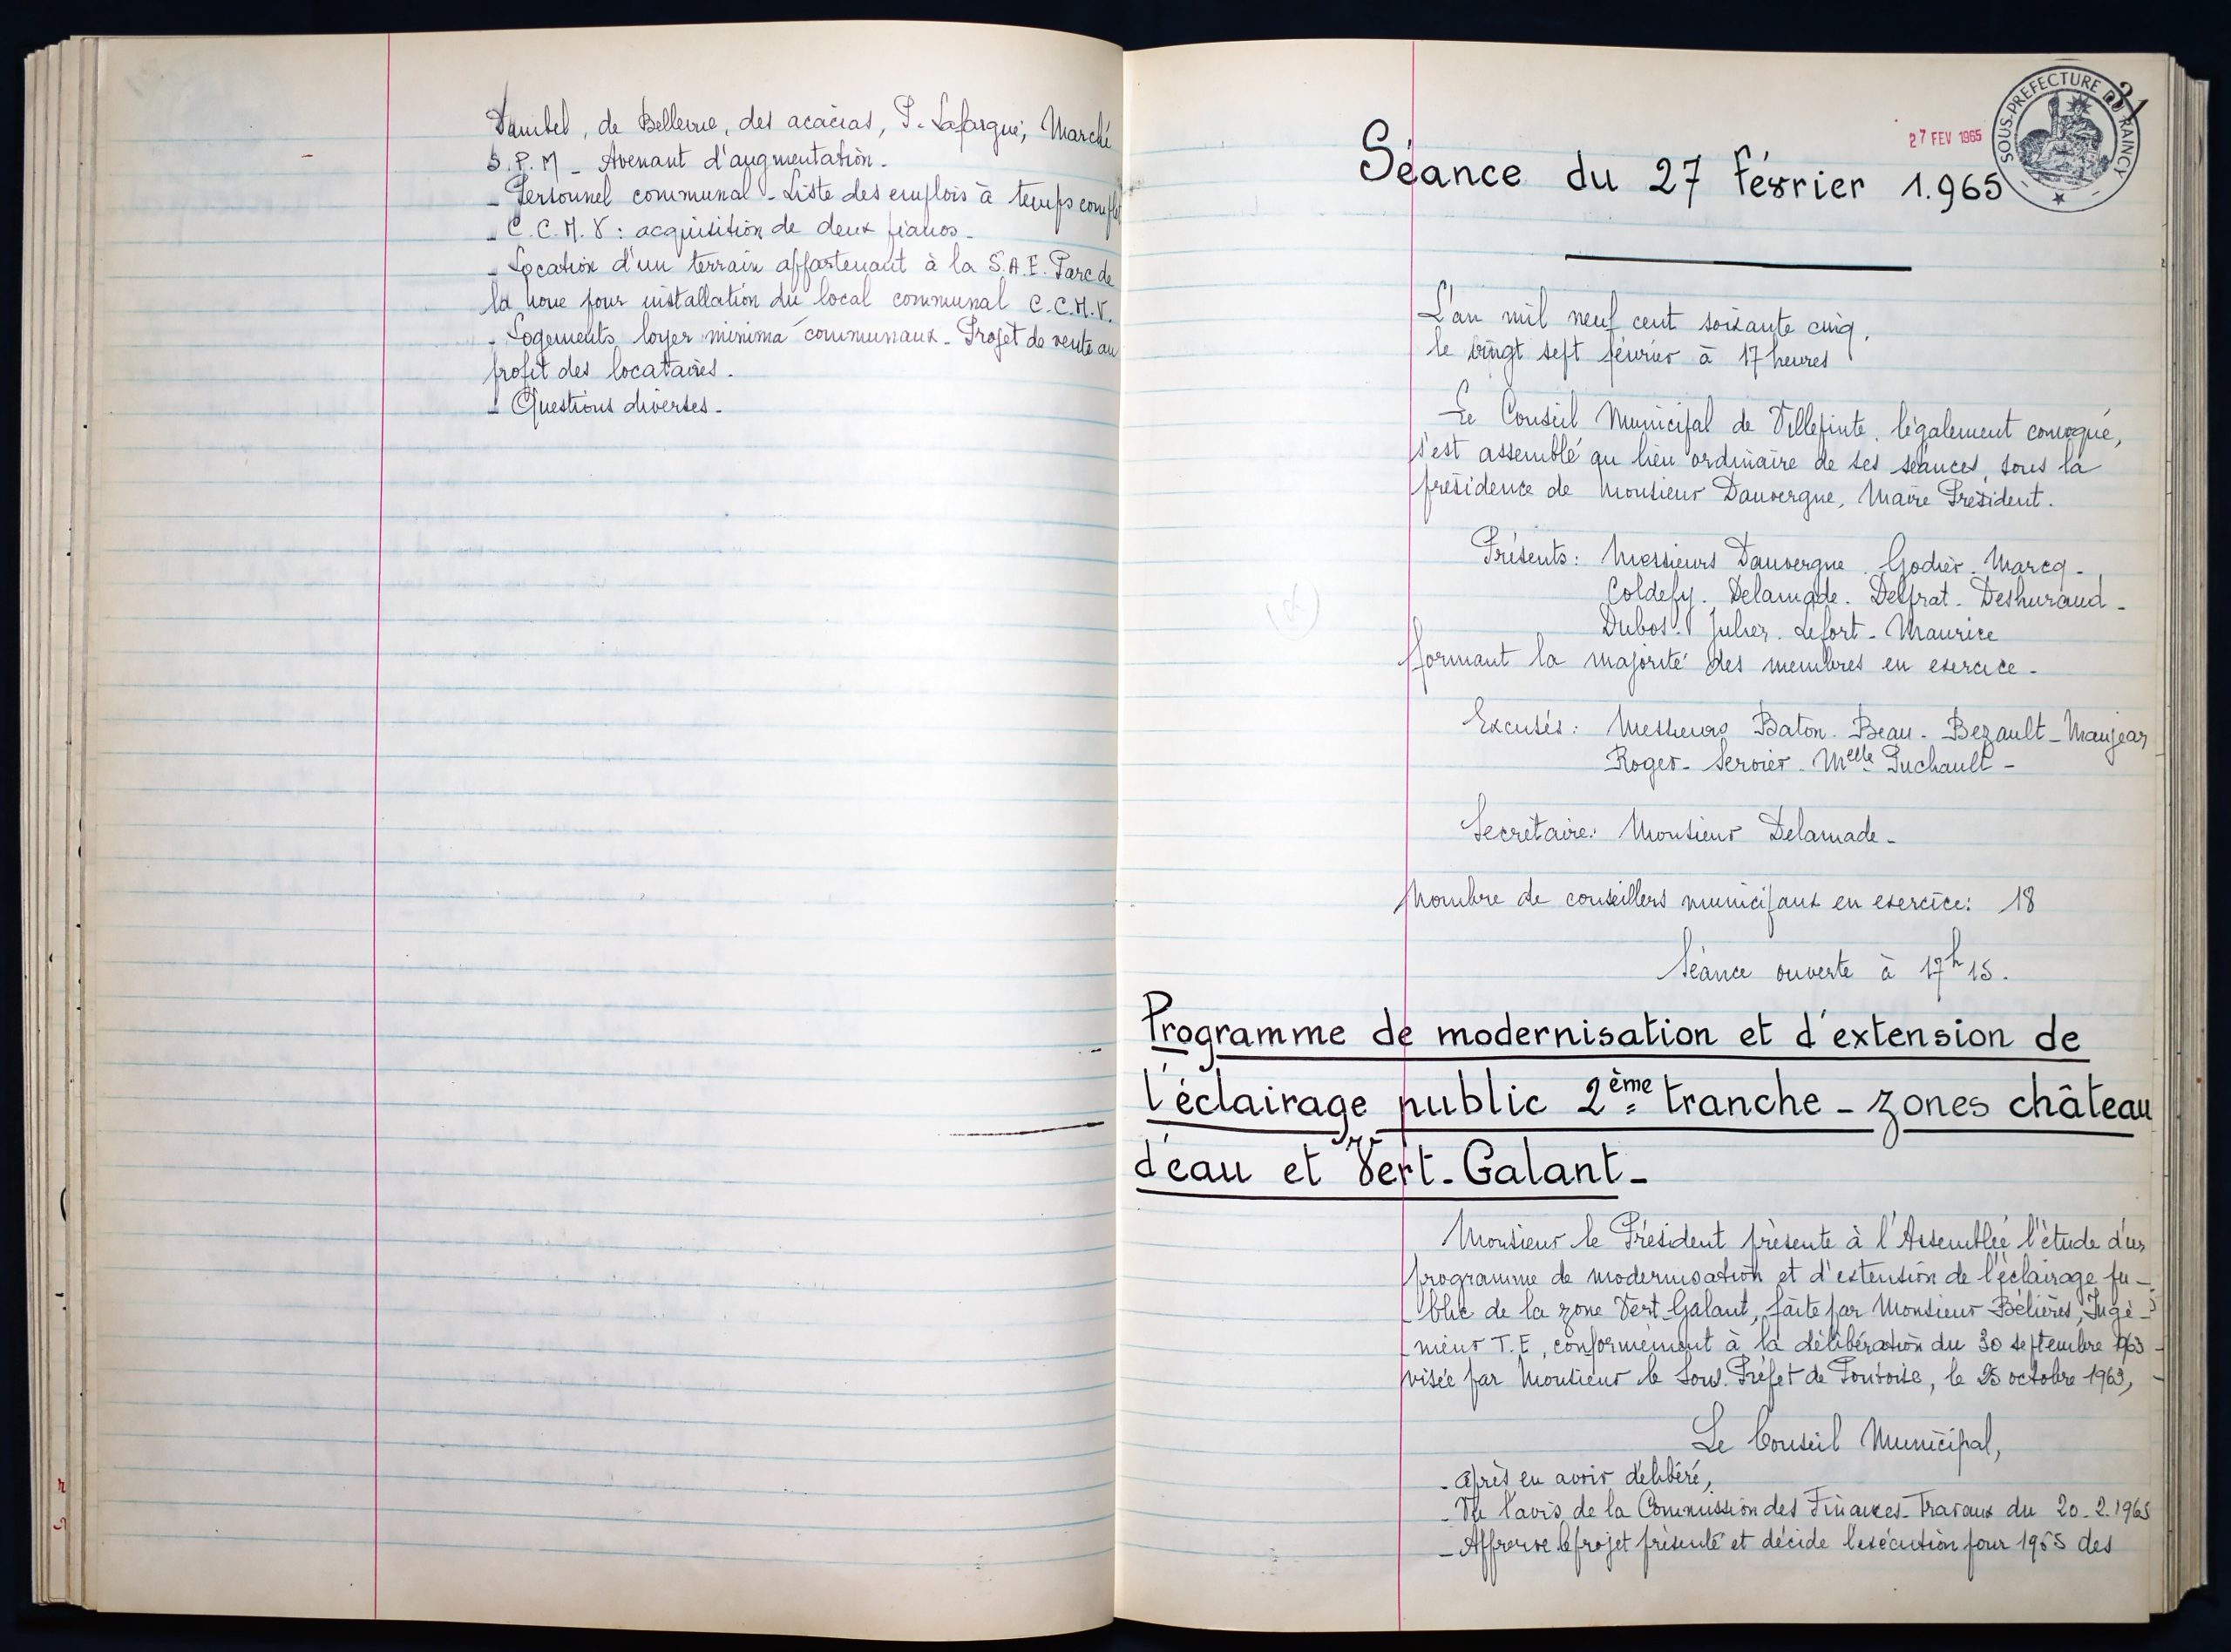 de Bellevue, des acacias, P. Lafargue; Marché
S.P.M - Avenant d'augmentation.
- Personnel communal - Liste des emplois à temps complet
- C.C.M.V : acquisition de deux pianos -
- Location d'un terrain appartenant à la S.A.E. Parc de
la noue pour installation du local communal C.C.M.V.
- Logements loyer minima communaux - Projet de vente au
profit des locataires.
- Questions diverses -
SOUS-PREFECTURE DU RAINCY
27 FEV 1965
Séance du 27 Février 1.965
L'an mil neuf cent soixante cinq,
le vingt sept février à 17 heures
Le Conseil Municipal de Villepinte, légalement convoqué,
s'est assemblé au lieu ordinaire de ses séances, sous la
présidence de Monsieur Dauvergne, Maire Président.
Présents : Messieurs Dauvergne . Godier . Marcq -
Coldefy . Delamade . Delprat . Deshuraud -
Dubos . Julier . Lefort - Maurice
formant la majorité des membres en exercice -
Excusés : Messieurs Baton . Beau - Bezault - Maujean
Roger - Servier - Melle Puchault -
Secrétaire : Monsieur Delamade -
Nombre de conseillers municipaux en exercice : 18
Séance ouverte à 17h 15.
Programme de modernisation et d'extension de
l'éclairage public 2ème tranche - zones château
d'eau et Vert-Galant -
Monsieur le Président présente à l'Assemblée l'étude d'un
programme de modernisation et d'extension de l'éclairage pu-
blic de la zone Vert-Galant, faite par Monsieur Bélières, Ingé-
nieur T.E, conformément à la délibération du 30 septembre 1963
visée par Monsieur le Sous-Préfet de Pontoise, le 25 octobre 1963,
Le Conseil Municipal,
- Après en avoir délibéré,
- Vu l'avis de la Commission des Finances-Travaux du 20.2.1965
- Approuve le projet présenté et décide l'exécution pour 1965 des